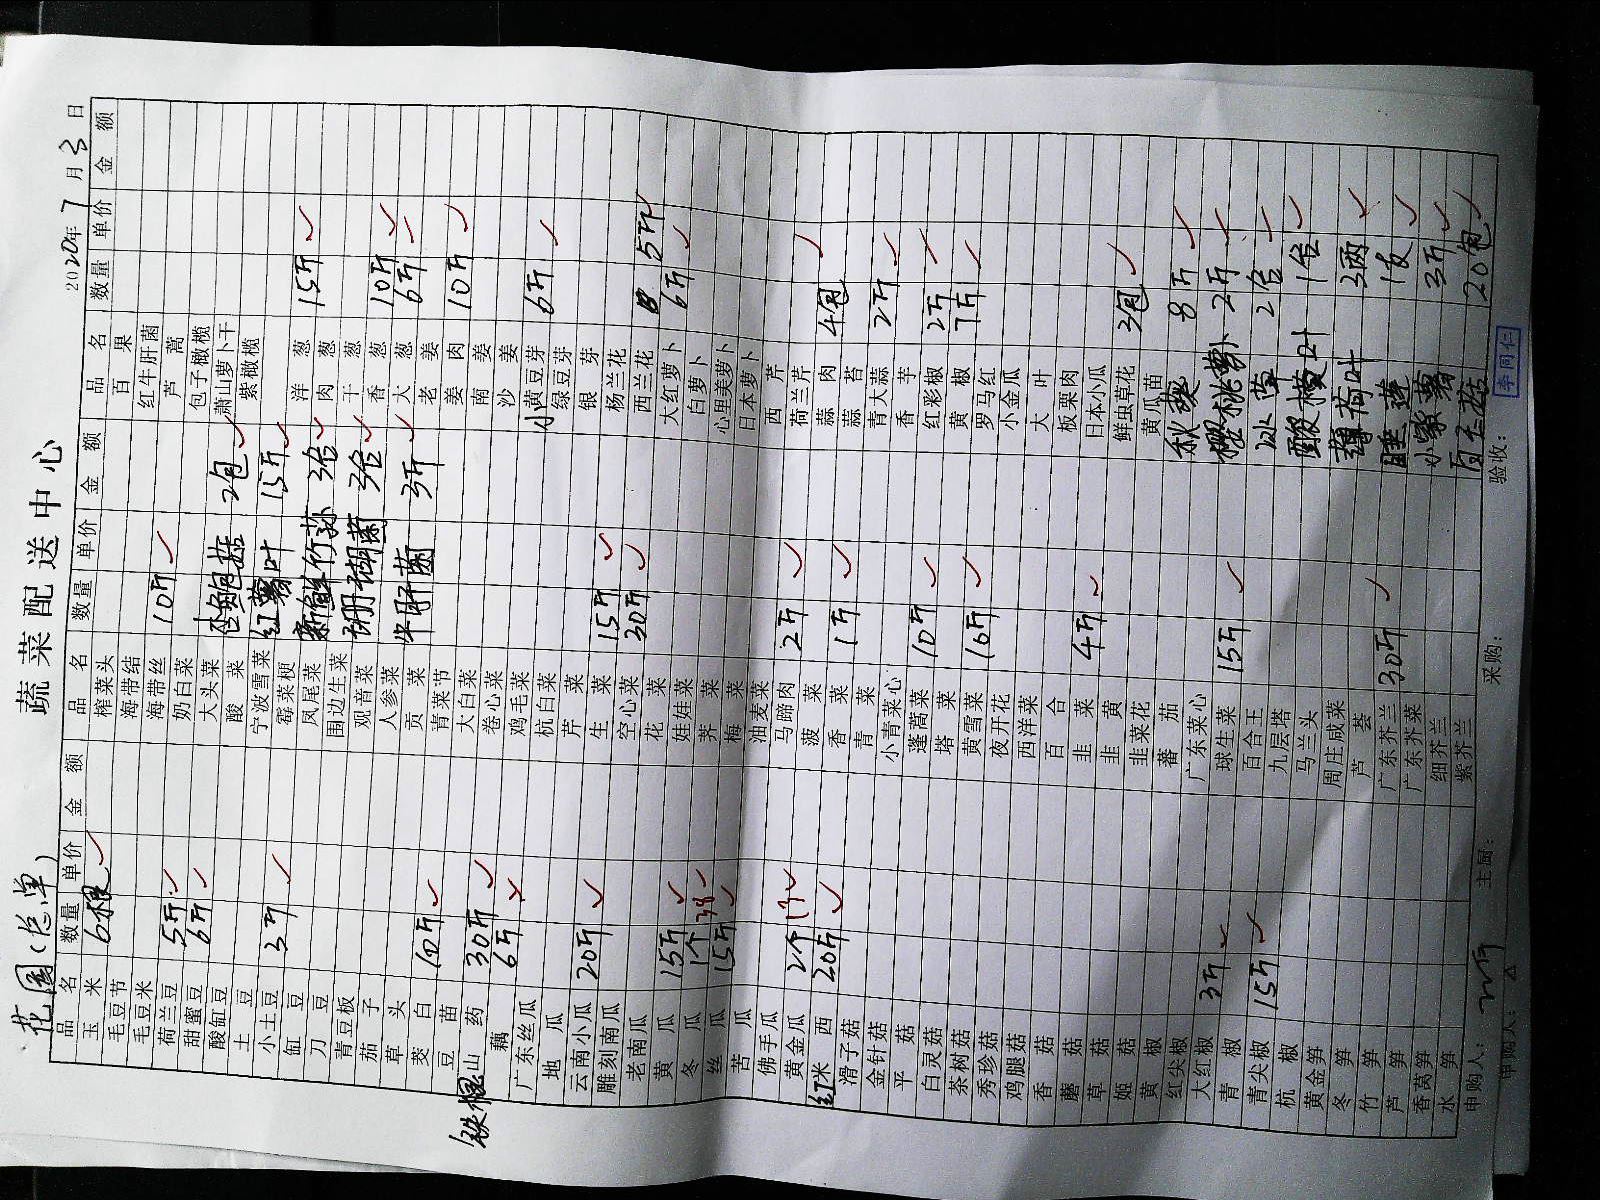 蔬菜配送中心
花园(总单) 2020年7月3日
品名 数量 单价 金额 品名 数量 单价 金额 品名 数量 单价 金额
玉米 6根 榨菜头 百果
毛豆节 海带结 红牛肝菌
毛豆米 海带丝 10斤 芦蒿
荷兰豆 5斤 奶白菜 包子橄榄
甜蜜豆 6斤 大头菜 杏鲍菇 2包 萧山萝卜干
酸缸豆 酸菜 紫橄榄
土豆 宁波雪菜 红薯叶 15斤
小土豆 3斤 霉菜梗 洋葱 15斤
缸豆 凤尾菜 新鲜竹荪 3台 肉葱
刀豆 围边生菜 干葱
青豆板 观音菜 珊瑚菌 3台 香葱 10斤
茄子 人参菜 大葱 6斤
草头 贡菜 牛肝菌 3斤 老姜
茭白 10斤 青菜节 姜肉 10斤
豆苗 大白菜 南姜
铁棍山药 30斤 卷心菜 沙姜
藕 6斤 鸡毛菜 小黄豆芽 6斤
广东丝瓜 杭白菜 绿豆芽
地瓜 芹菜 银芽
云南小瓜 20斤 生菜 15斤 杨兰花
雕刻南瓜 空心菜 30斤 西兰花 5斤
老南瓜 花菜 大红萝卜 6斤
黄瓜 15斤 娃娃菜 白萝卜
冬瓜 1个 38 荠菜 心里美萝卜
丝瓜 15斤 梅菜 日本萝卜
苦瓜 油麦菜 西芹
佛手瓜 马蹄肉 2斤 荷兰芹
黄金瓜 2个 13 菠菜 蒜肉 4包
红米西 20斤 香菜 1斤 蒜苔
滑子菇 青菜 青大蒜 2斤
金针菇 小青菜心 香芋
平菇 蓬蒿菜 10斤 红彩椒 2斤
白灵菇 塔菜 黄椒 7斤
茶树菇 黄雪菜 10斤 罗马红
秀珍菇 夜开花 小金瓜
鸡腿菇 西洋菜 大叶
香菇 百合 板栗肉
蘑菇 韭菜 4斤 日本小瓜
草菇 韭黄 鲜虫草花 3包
姬菇 韭菜花 黄瓜苗
黄椒 蕃茄 秋葵 8斤
红尖椒 广东菜心 樱桃萝卜 2斤
大红椒 3斤 球生菜 15斤 冰草 2台
青椒 百合王 酸模叶 1台
青尖椒 15斤 九层塔 薄荷叶 3两
杭椒 马兰头 睡莲 1支
黄金笋 周庄咸菜 小紫薯 3斤
冬笋 芦荟 白玉菇 20包
竹笋 广东芥兰 30斤
芦笋 广东芥菜
香莴笋 细芥兰
水笋 紫芥兰
申购人: 主厨: 采购: 验收: 李同仁
申购人: